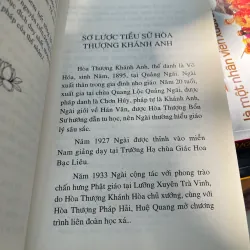 SƠ LƯỢC TIỂU SỬ HÒA
THƯỢNG KHÁNH ANH
Hòa Thượng Khánh Anh, thế danh là Võ
Hóa, sinh Năm, 1895, tại Quảng Ngãi. Ngài
xuất thân trong gia đình nho giáo. Năm 20 tuổi,
xuất gia tại chùa Quang Lộc Quảng Ngãi, pháp
danh là Chơn Húy, pháp tự là Khánh Anh.
Ngài giỏi về Hán Văn, được Hòa Thượng Bổn
Sư hướng dẫn tu học, nên Ngài thường hiểu giáo
lý sâu sắc.
Năm 1927 Ngài được thỉnh vào miền
Nam giảng dạy tại Trường Hạ chùa Giác Hoa
Bạc Liêu.
Năm 1933 Ngài cộng tác với phong trào
chấn hưng Phật giáo tại Lưỡng Xuyên Trà Vinh,
do Hòa Thượng Khánh Hòa chủ xướng, cùng với
Hòa Thượng Pháp Hải, Huệ Quang mở chương
trình liên đoàn học xá...
là một nhân viên